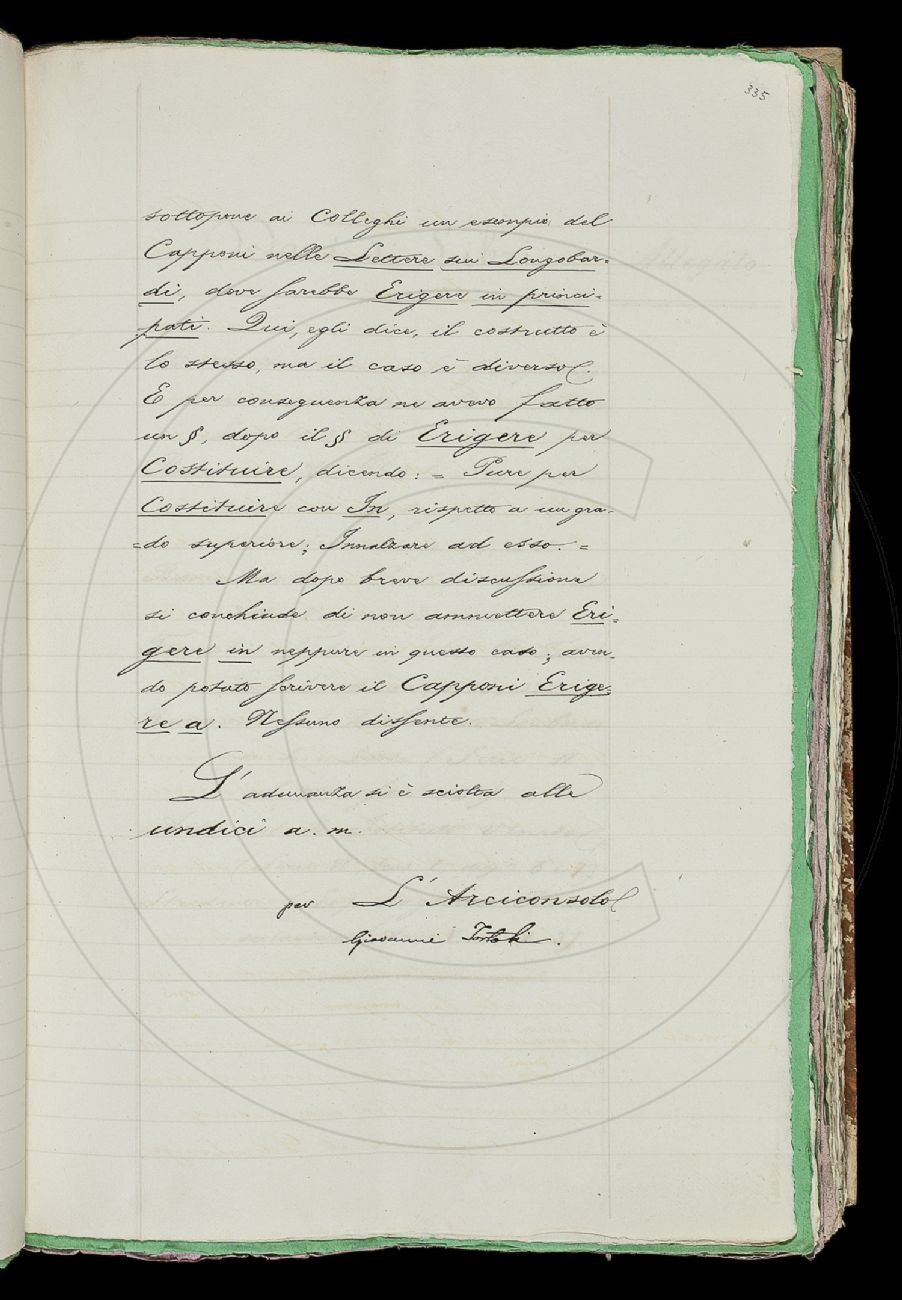 335
sottopone ai Colleghi un esempio del
Capponi nelle Lettere sui Longobar-
di, dove sarebbe Erigere in princi-
pati. Qui, egli dice, il costrutto è
lo stesso, ma il caso è diverso.
E per conseguenza ne avevo fatto
un §, dopo il § di Erigere per
Costituire, dicendo: = Pure per
Costituire con In, rispetto a un gra-
=do superiore; Innalzare ad esso. =
Ma dopo breve discussione
si conchiude di non ammettere Eri-
gere in neppure in questo caso; aven-
do potuto scrivere il Capponi Erige-
re a. Nessuno dissente.
L'adunanza si è sciolta alle
undici a. m.
per L'Arciconsolo
Giovanni Tortoli.